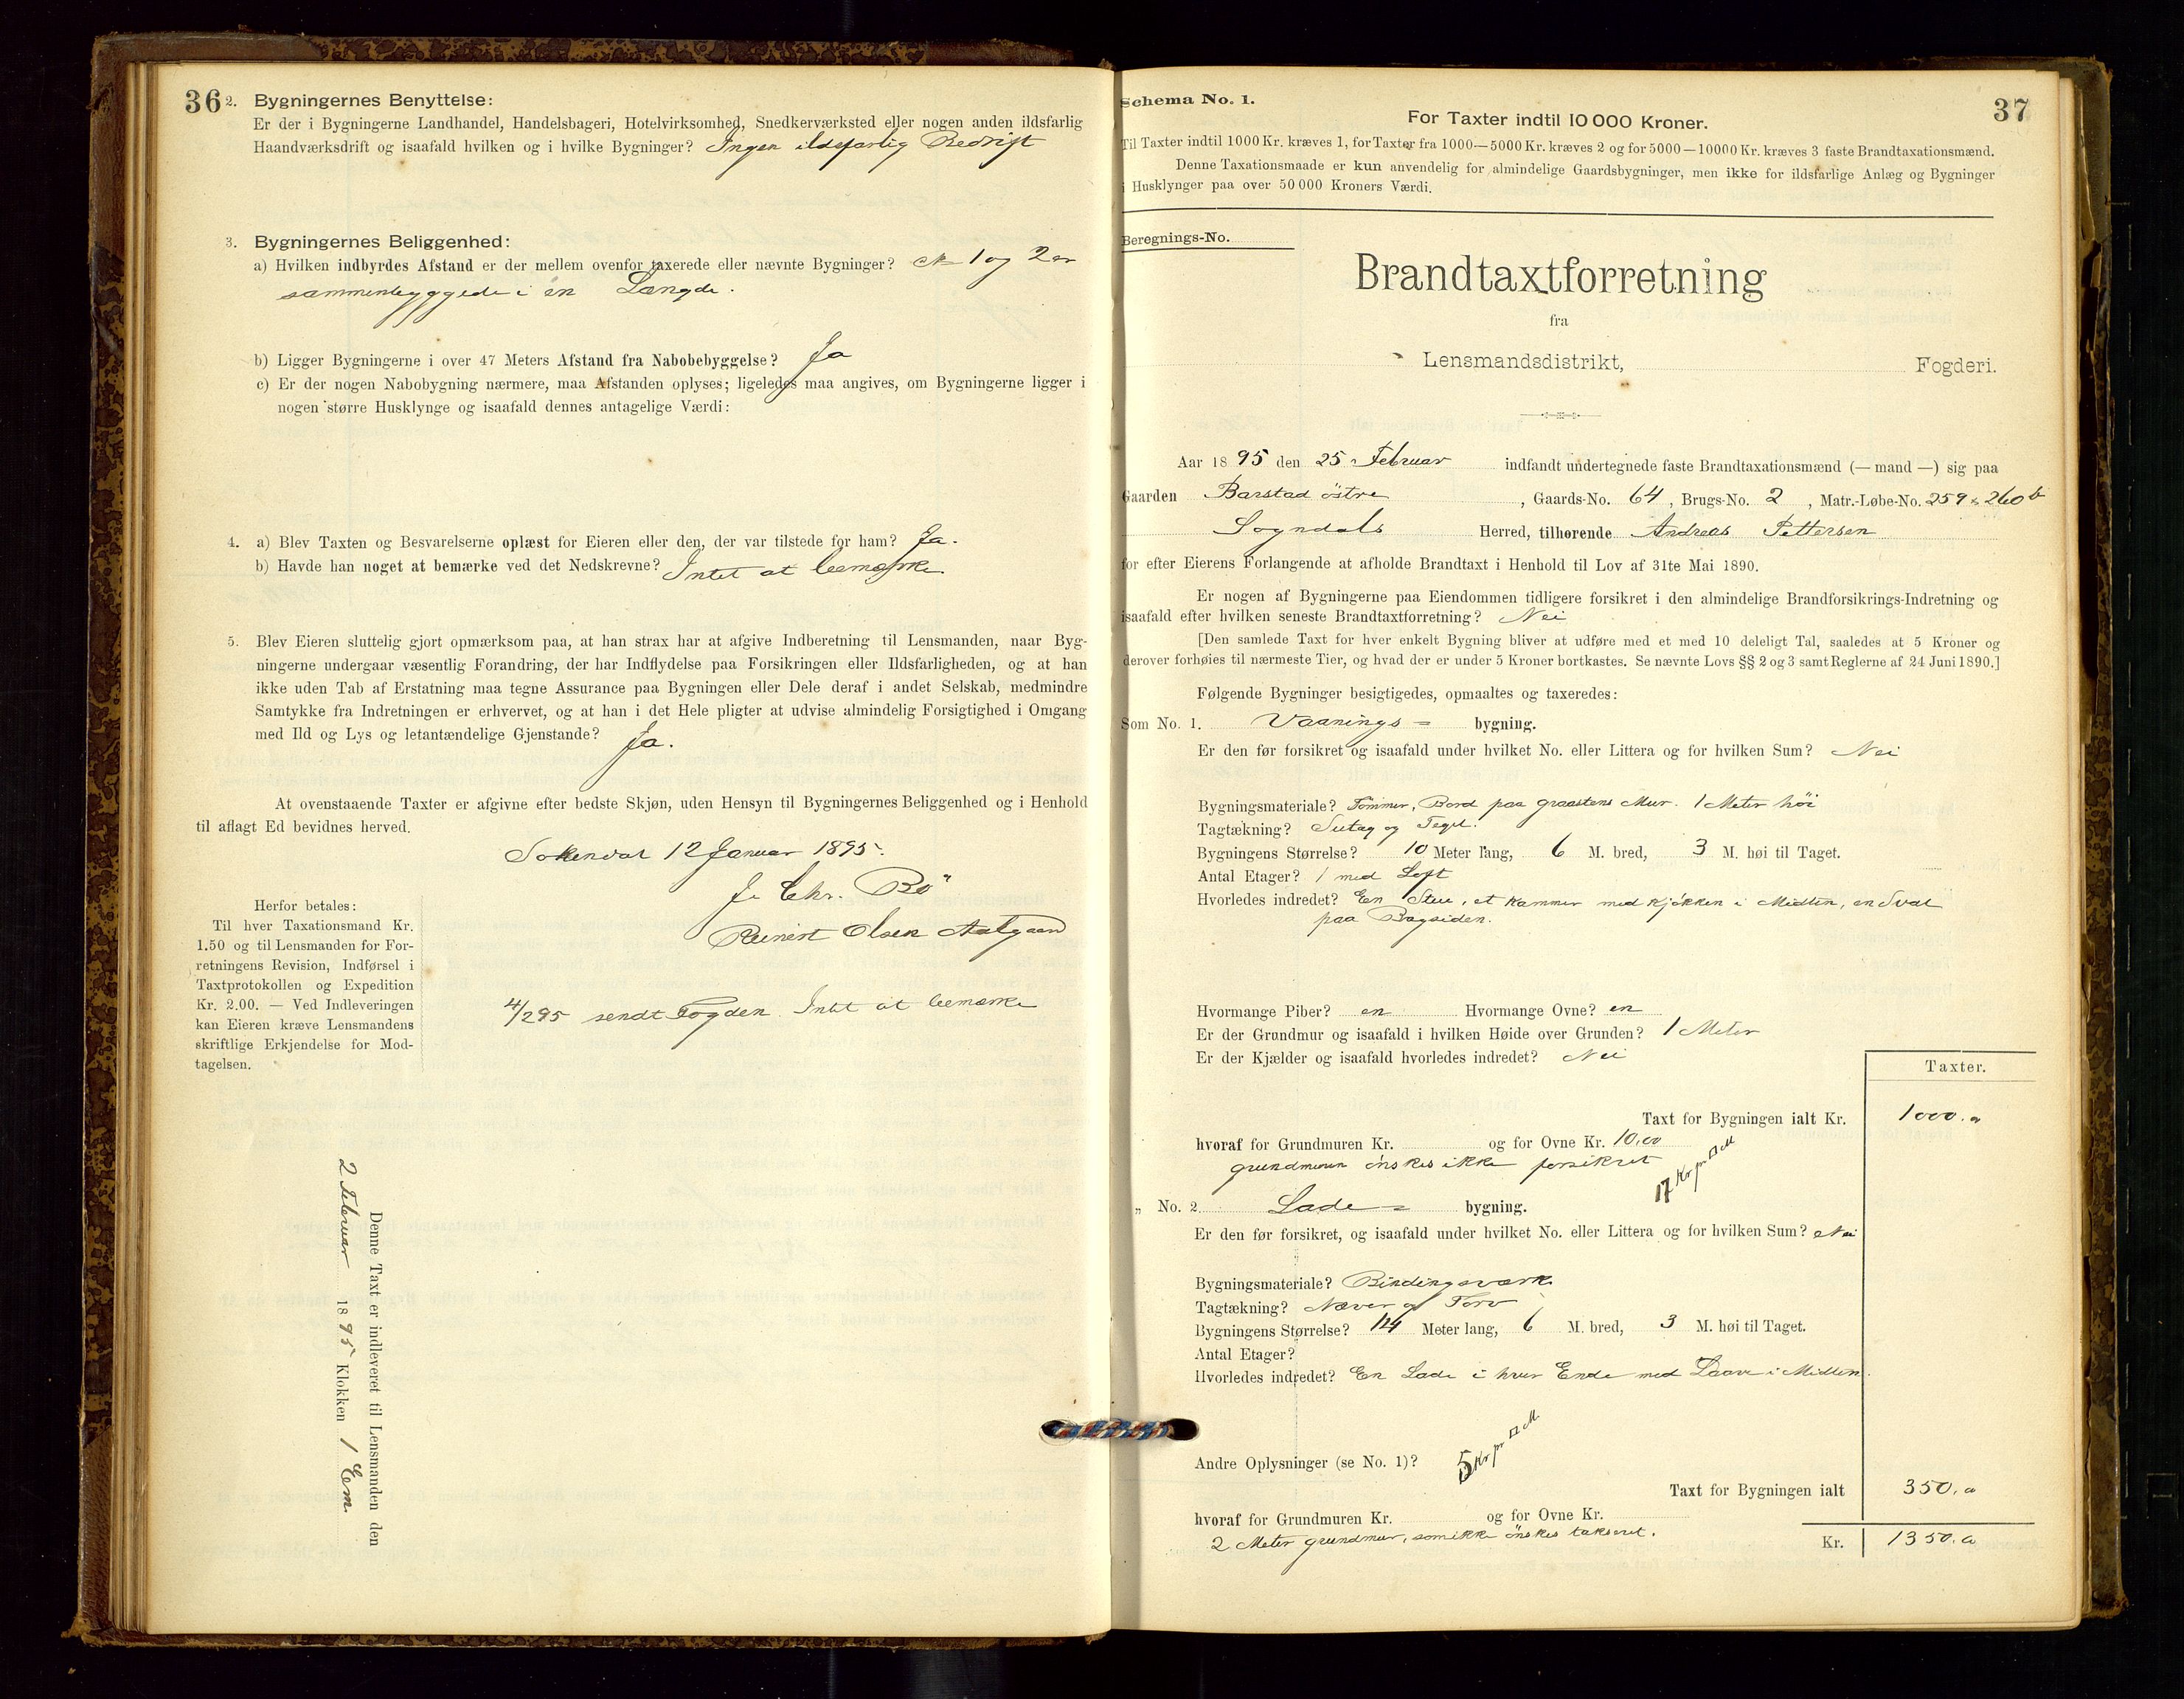 36
2. Bygningernes Benyttelse:
Er der i Bygningerne Landhandel, Handelsbageri, Hotelvirksomhed, Snedkerværksted eller nogen anden ildsfarlig
Haandværksdrift og isaafald hvilken og i hvilke Bygninger? Ingen ildsfarlig Bedrift
3. Bygningernes Beliggenhed:
a) Hvilken indbyrdes Afstand er der mellem ovenfor taxerede eller nævnte Bygninger? No 1 og 2 er
sammenbyggede i en Længde.
b) Ligger Bygningerne i over 47 Meters Afstand fra Nabobebyggelse? Ja
c) Er der nogen Nabobygning nærmere, maa Afstanden oplyses; ligeledes maa angives, om Bygningerne ligger i
nogen større Husklynge og isaafald dennes antagelige Værdi:
4. a) Blev Taxten og Besvarelserne oplæst for Eieren eller den, der var tilstede for ham? Ja.
b) Havde han noget at bemærke ved det Nedskrevne? Intet at bemærke
5. Blev Eieren sluttelig gjort opmærksom paa, at han strax har at afgive Indberetning til Lensmanden, naar Byg-
ningerne undergaar væsentlig Forandring, der har Indflydelse paa Forsikringen eller Ildsfarligheden, og at han
ikke uden Tab af Erstatning maa tegne Assurance paa Bygningen eller Dele deraf i andet Selskab, medmindre
Samtykke fra Indretningen er erhvervet, og at han i det Hele pligter at udvise almindelig Forsigtighed i Omgang
med Ild og Lys og letantændelige Gjenstande? Ja.
At ovenstaaende Taxter er afgivne efter bedste Skjøn, uden Hensyn til Bygningernes Beliggenhed og i Henhold
til aflagt Ed bevidnes herved.
Sokendal 12 Januar 1895.
J. Chr. Bö
Reinert Olsen Aalgaard
Herfor betales:
Til hver Taxationsmand Kr.
1.50 og til Lensmanden for For-
retningens Revision, Indførsel i
Taxtprotokollen og Expedition
Kr. 2.00. — Ved Indleveringen
kan Eieren kræve Lensmandens
skriftlige Erkjendelse for Mod-
tagelsen.
4/2 95 sendt Fogden. Intet at bemærke
Denne Taxt er indleveret til Lensmanden den
2 Februar 1895 Klokken 1 Em
37
Schema No. 1.
For Taxter indtil 10 000 Kroner.
Til Taxter indtil 1000 Kr. kræves 1, for Taxter fra 1000—5000 Kr. kræves 2 og for 5000—10000 Kr. kræves 3 faste Brandtaxationsmænd.
Denne Taxationsmaade er kun anvendelig for almindelige Gaardsbygninger, men ikke for ildsfarlige Anlæg og Bygninger
i Husklynger paa over 50 000 Kroners Værdi.
Beregnings-No.
Brandtaxtforretning
fra
Lensmandsdistrikt, Fogderi.
Aar 1895 den 25 Februar indfandt undertegnede faste Brandtaxationsmænd (— mand —) sig paa
Gaarden Barstad östre, Gaards-No. 64, Brugs-No. 2, Matr.-Løbe-No. 259 & 260 b
Sogndals Herred, tilhørende Andreas Pettersen
for efter Eierens Forlangende at afholde Brandtaxt i Henhold til Lov af 31te Mai 1890.
Er nogen af Bygningerne paa Eiendommen tidligere forsikret i den almindelige Brandforsikrings-Indretning og
isaafald efter hvilken seneste Brandtaxtforretning? Nei
[Den samlede Taxt for hver enkelt Bygning bliver at udføre med et med 10 deleligt Tal, saaledes at 5 Kroner og
derover forhøies til nærmeste Tier, og hvad der er under 5 Kroner bortkastes. Se nævnte Lovs §§ 2 og 3 samt Reglerne af 24 Juni 1890.]
Følgende Bygninger besigtigedes, opmaaltes og taxeredes:
Som No. 1. Vaanings= bygning.
Er den før forsikret og isaafald under hvilket No. eller Littera og for hvilken Sum? Nei
Bygningsmateriale? Tömmer, Bord paa graastens Mur. 1 Meter höi
Tagtækning? Sutag og Tegel.
Bygningens Størrelse? 10 Meter lang, 6 M. bred, 3 M. høi til Taget.
Antal Etager? 1 med Loft
Hvorledes indredet? En Stue, et Kammer med Kjökken i Midten, en Sval
paa Bagsiden.
Hvormange Piber? en Hvormange Ovne? en
Er der Grundmur og isaafald i hvilken Høide over Grunden? 1 Meter
Er der Kjælder og isaafald hvorledes indredet? Nei
Taxter.
Taxt for Bygningen ialt Kr. 1000.
hvoraf for Grundmuren Kr. og for Ovne Kr. 10,00
grundmuren önskes ikke forsikret
17 Kr pr □ M
„ No. 2. Lade= bygning.
Er den før forsikret, og isaafald under hvilket No. eller Littera og for hvilken Sum? Nei
Bygningsmateriale? Bindingsværk
Tagtækning? Næver og Torv
Bygningens Størrelse? 14 Meter lang, 6 M. bred, 3 M. høi til Taget.
Antal Etager?
Hvorledes indredet? En Lade i hver Ende med Laave i Midten.
5 Kr pr □ M.
Andre Oplysninger (se No. 1)?
Taxt for Bygningen ialt 350.
hvoraf for Grundmuren Kr. og for Ovne Kr.
2 Meter grundmur, som ikke önskes takseret.
Kr. 1350.